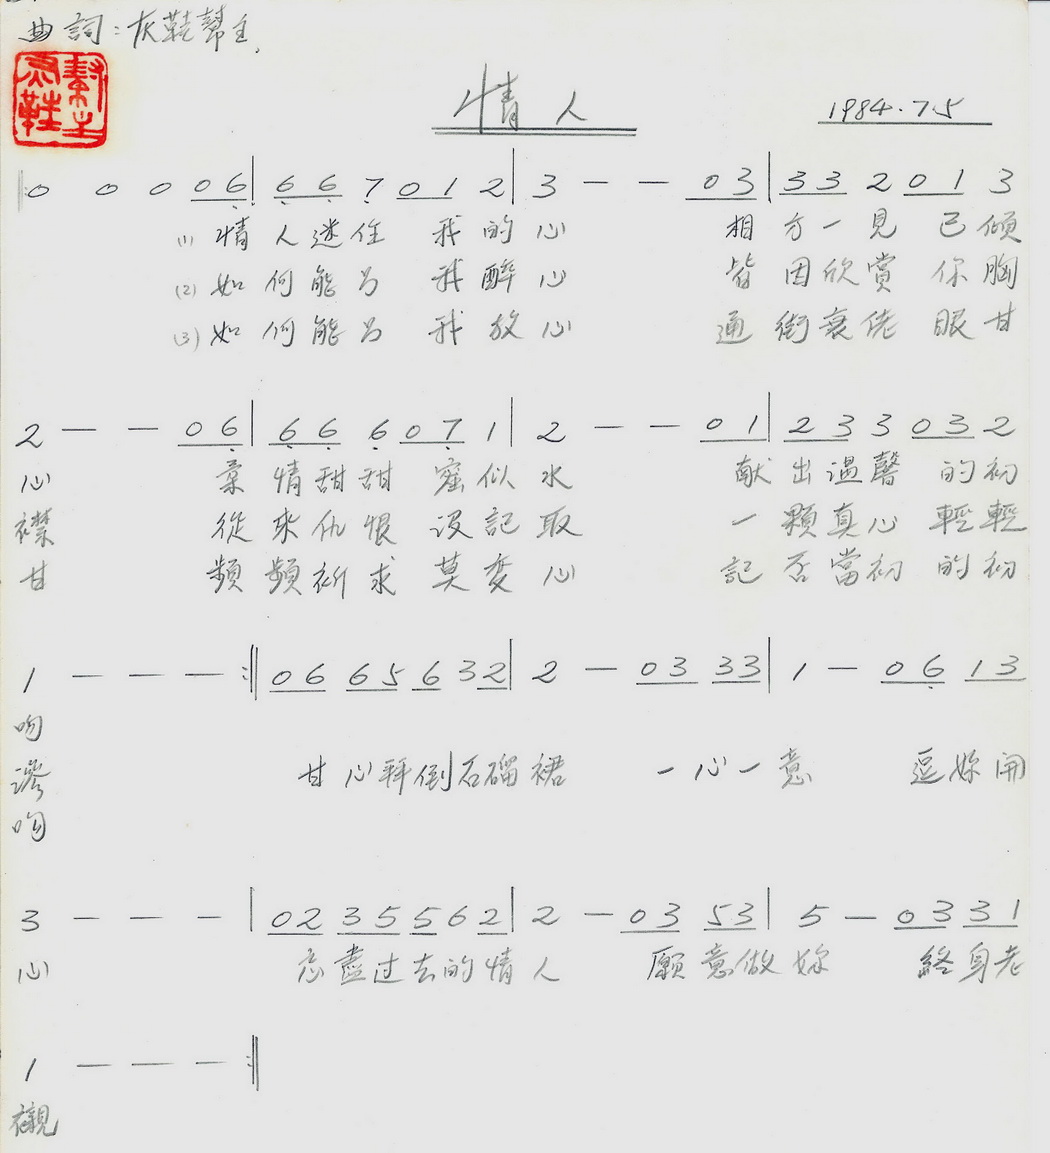 曲詞：灰鞋幫主
情人
1984.7.5
0 0 0 06 | 6 6 7 0 1 2 | 3 — — 03 | 33 2 0 1 3
(1) 情人迷住 我的心 相方一見 已傾
(2) 如何能另 我醉心 皆因欣賞 你胸
(3) 如何能另 我放心 通街衰佬 眼甘
2 — — 06 | 6 6 6 0 7 1 | 2 — — 01 | 23 3 03 2
心 柔情甜甜 蜜似水 献出溫馨 的初
襟 從來仇恨 沒記取 一顆真心 輕輕
甘 頻頻祈求 莫变心 記否當初 的初
1 — — — :|| 06 65 6 32 | 2 — 03 33 | 1 — 06 13
吻
滲 甘心拜倒石榴裙 一心一意 逗妳開
吻
3 — — — | 02 35 5 6 2 | 2 — 03 53 | 5 — 03 31
心 忘盡过去的情人 願意做妳 終身老
1 — — — :||
襯